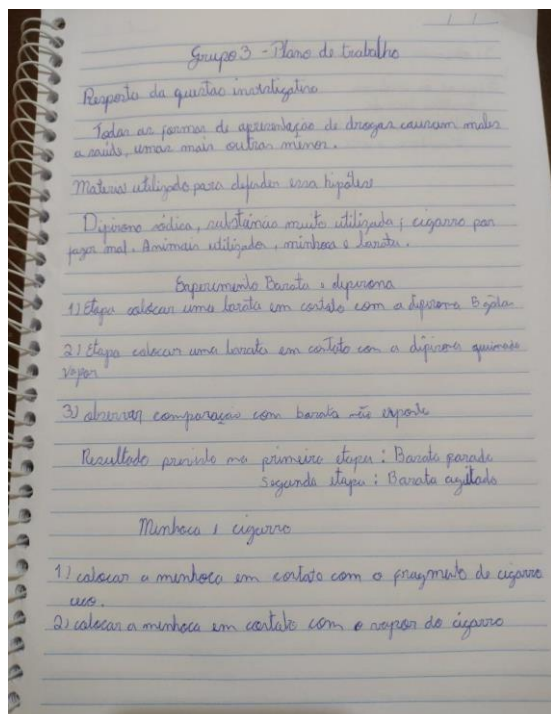 Grupo 3 - Plano de trabalho
Resposta da questão investigativa
Todas as formas de apresentação de drogas causam males
a saúde, umas mais outras menos.
Material utilizado para defender essa hipótese
Dipirona sódica, substância muito utilizada; cigarro por
fazer mal. Animais utilizados, minhoca e barata.
Experimento Barata e dipirona
1) Etapa colocar uma barata em contato com a dipirona 5 gotas
2) Etapa colocar uma barata em contato com a dipirona queimada
vapor
3) observar comparação com barata não exposta
Resultado previsto na primeira etapa: Barata parada
Segunda etapa: Barata agitada
Minhoca e cigarro
1) colocar a minhoca em contato com o fragmento de cigarro
2) colocar a minhoca em contato com o vapor do cigarro